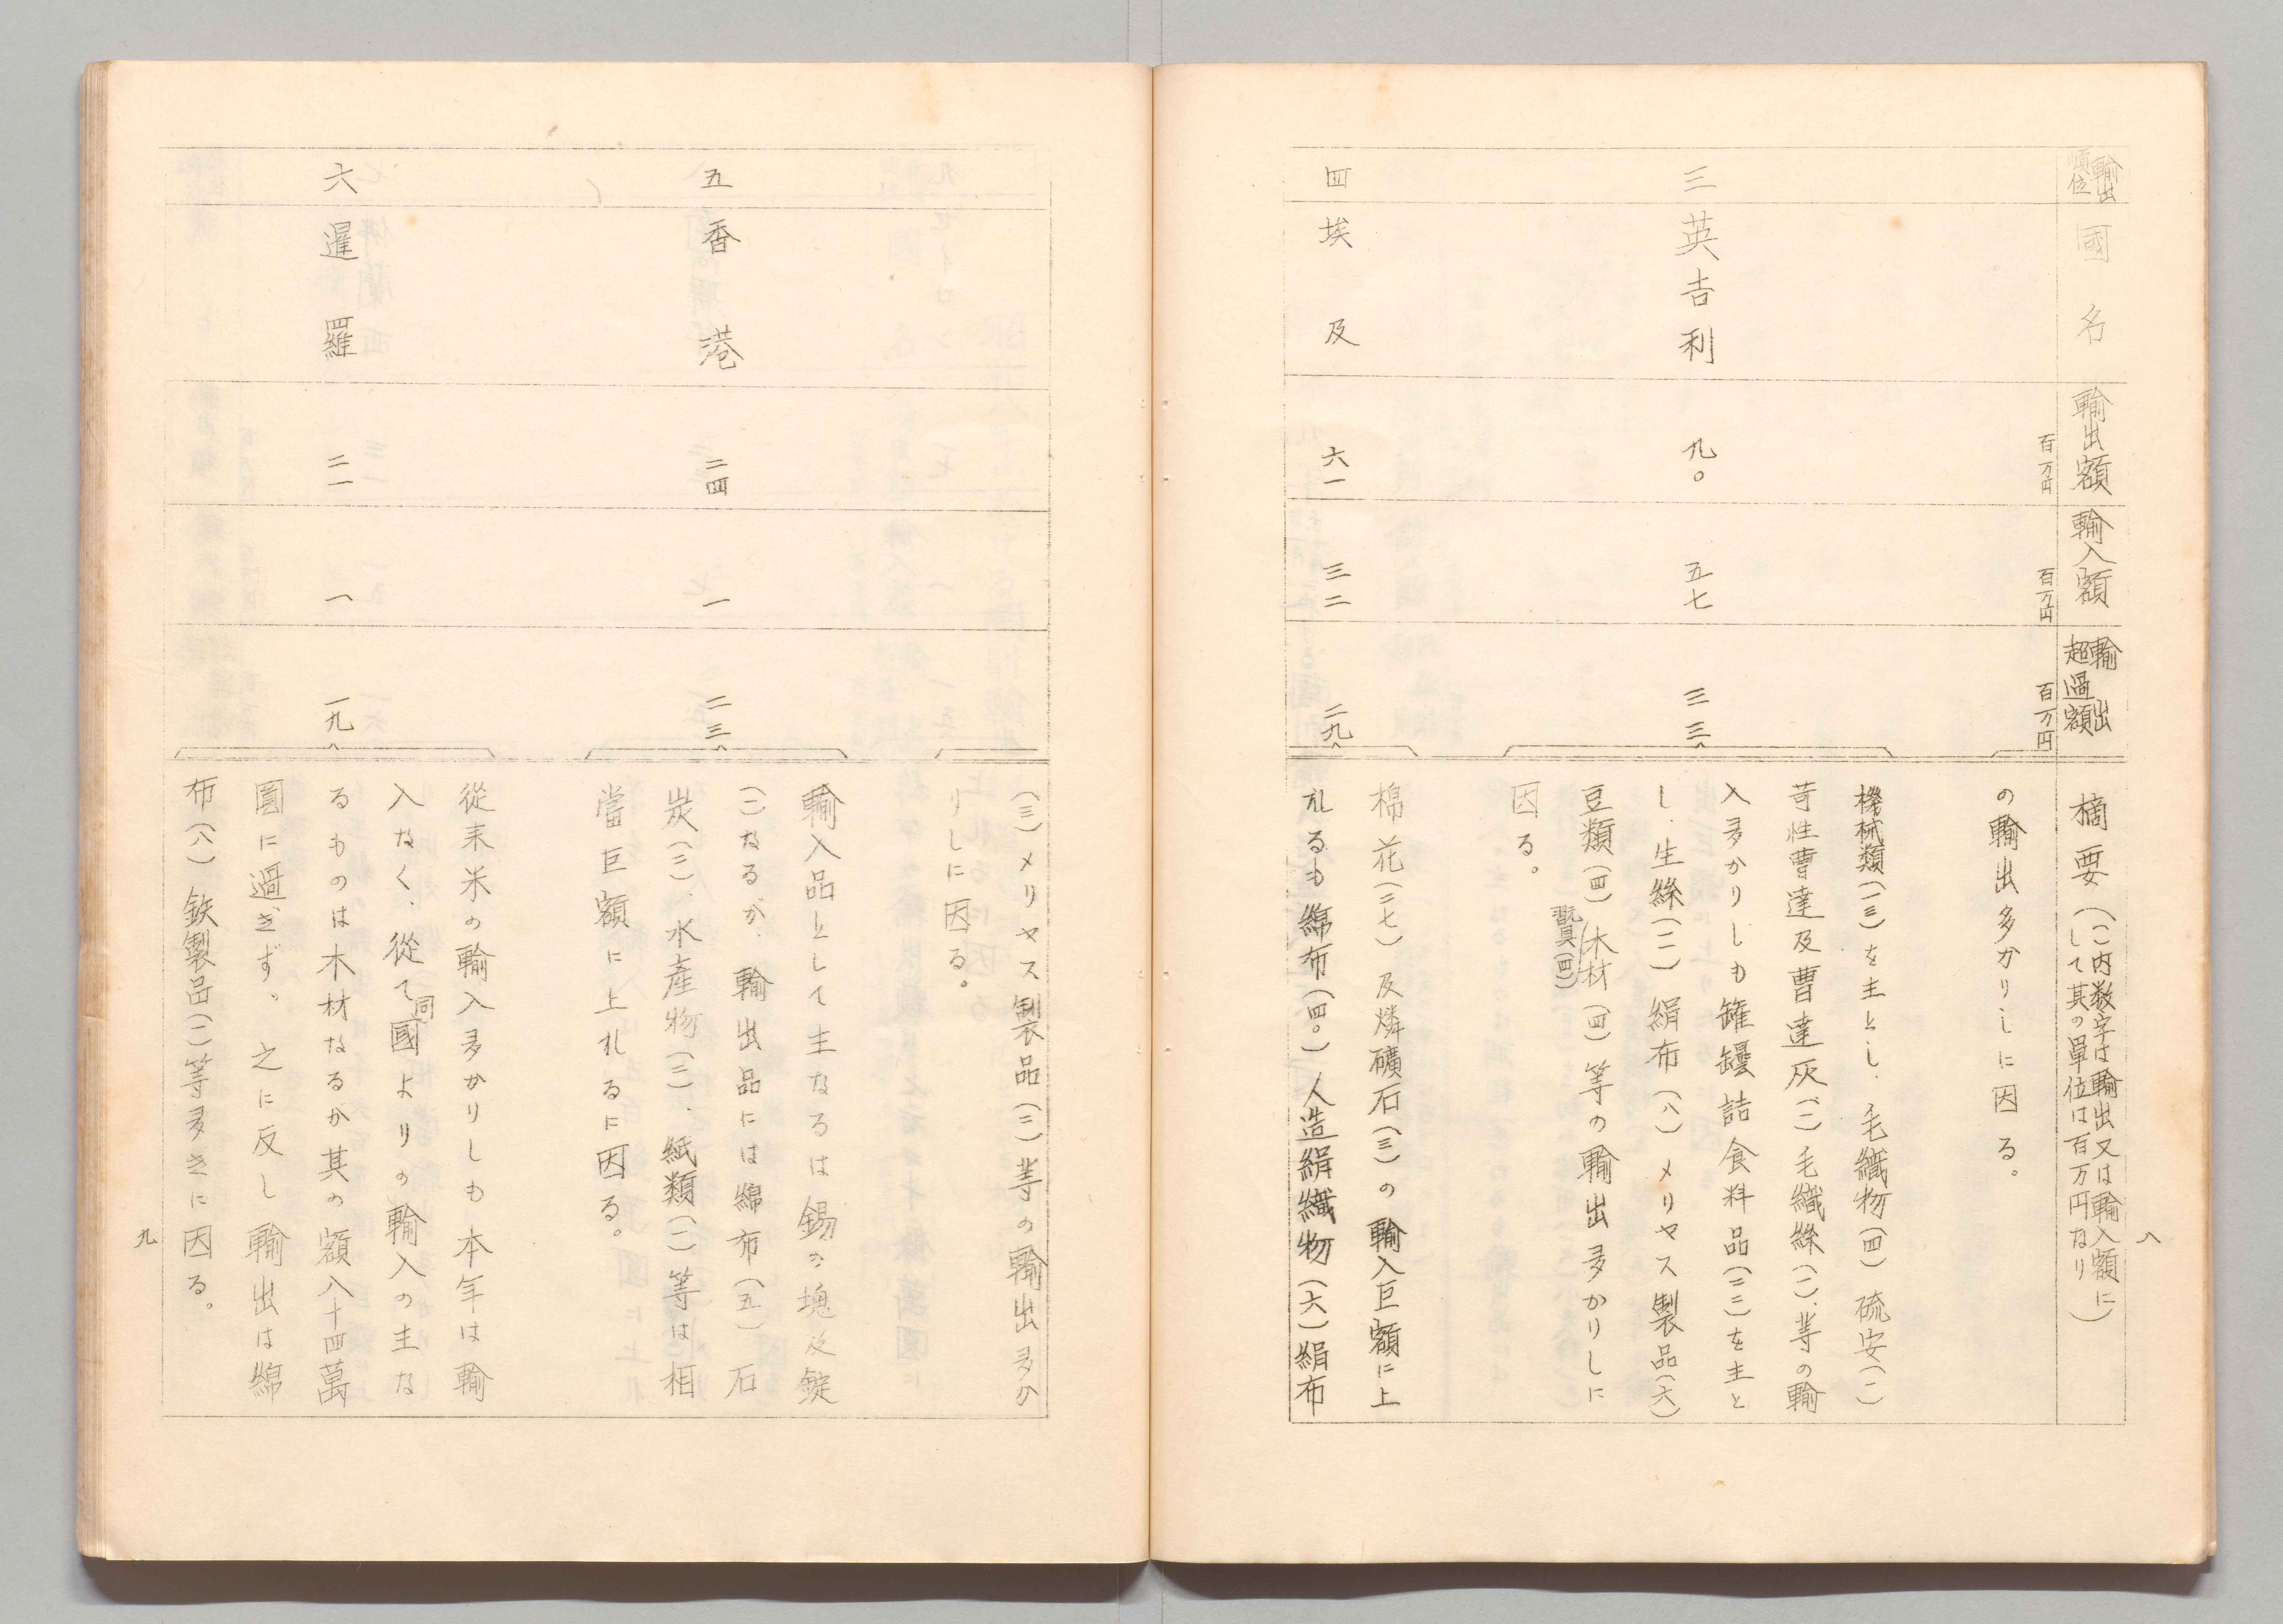 八
輸出順位
國名
輸出額
輸入額
輸出超過額
摘要（（）内数字は輸出又は輸入額にして其の單位は百万円なり）
百万円
百万円
百万円
の輸出多かりしに因る。
三
英吉利
九〇
五七
三三
機械類（一三）を主とし、毛織物（四）硫安（一）
苛性曹達及曹達灰（一）毛織絲（一）、等の輸
入多かりしも罐罎詰食料品（三二）を主と
し、生絲（一一）絹布（八）メリヤス製品（六）
豆類（四）木材（四）等の輸出多かりしに
玩具（四）
因る。
四
埃及
六一
三二
二九
棉花（二七）及燐礦石（三）の輸入巨額に上
れるも綿布（四〇）人造絹織物（六）絹布
（三）メリヤス製品（三）等の輸出多か
りしに因る。
五
香港
二四
一
二三
輸入品として主なるは錫の塊及錠
（一）なるが、輸出品には綿布（五）石
炭（三）、水産物（三）、紙類（一）等は相
當巨額に上れるに因る。
六
暹羅
二一
一
一九
從来米の輸入多かりしも本年は輸
入なく、從て同國よりの輸入の主な
るものは木材なるが其の額八十四萬
圓に過ぎず。之に反し輸出は綿
布（八）鉄製品（一）等多きに因る。
九